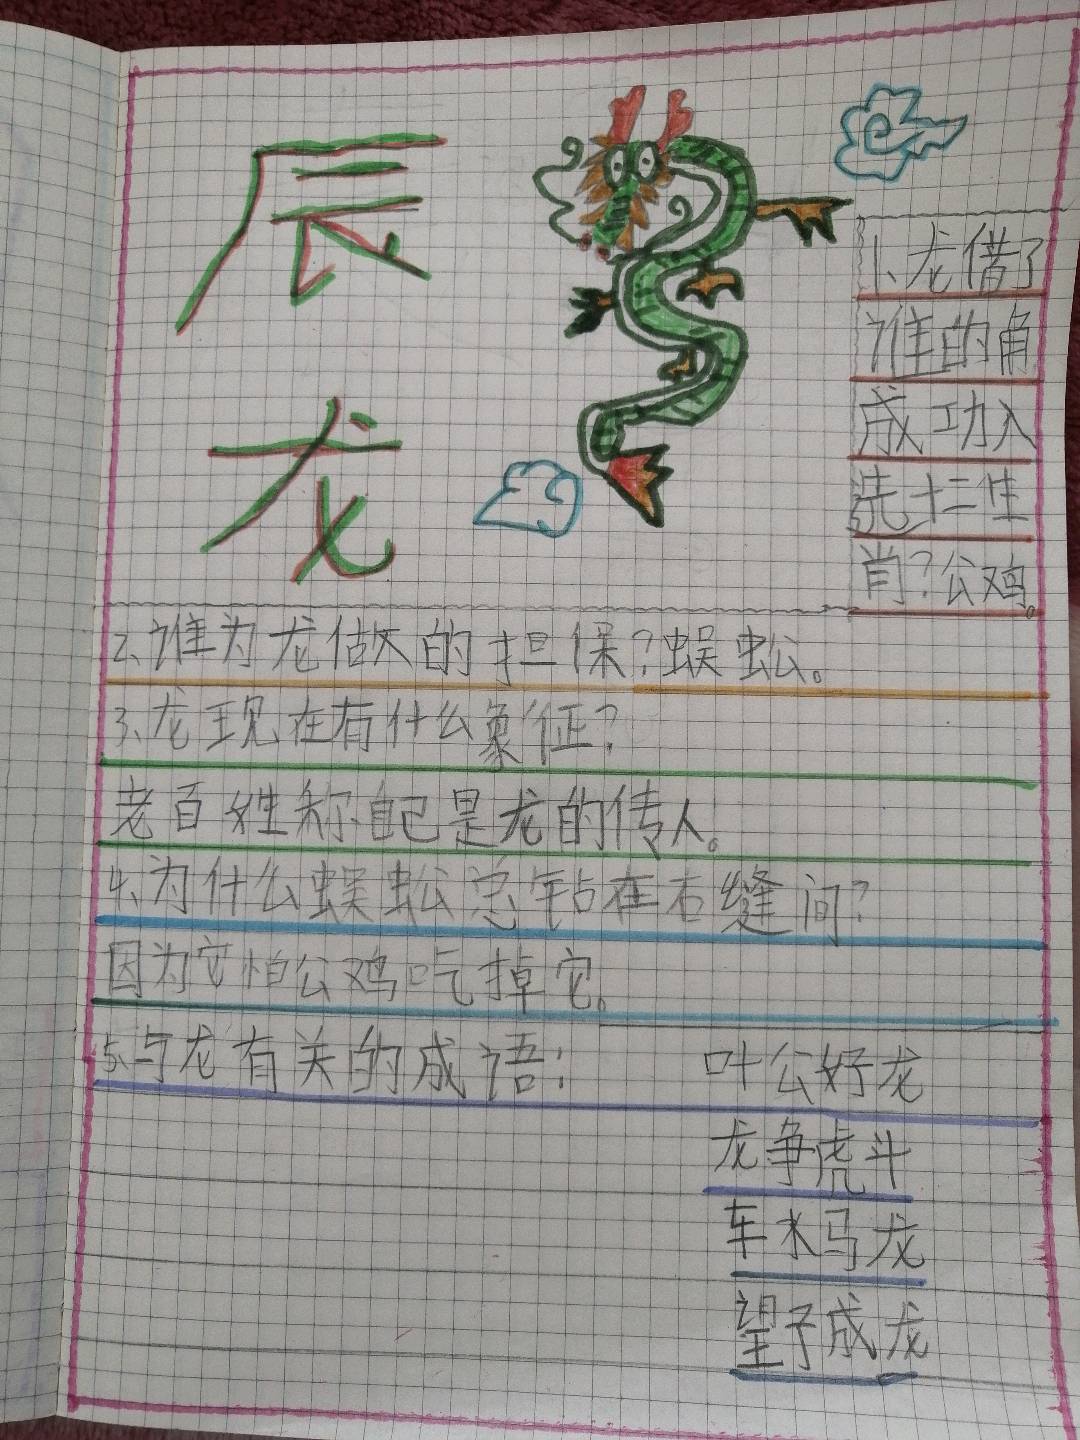 辰
龙
1、龙借了
谁的角
成功入
选十二生
肖?公鸡。
2、谁为龙做的担保?蜈蚣。
3、龙现在有什么象征?
老百姓称自己是龙的传人。
4、为什么蜈蚣总钻在石缝间?
因为它怕公鸡吃掉它。
5、与龙有关的成语: 叶公好龙
龙争虎斗
车水马龙
望子成龙